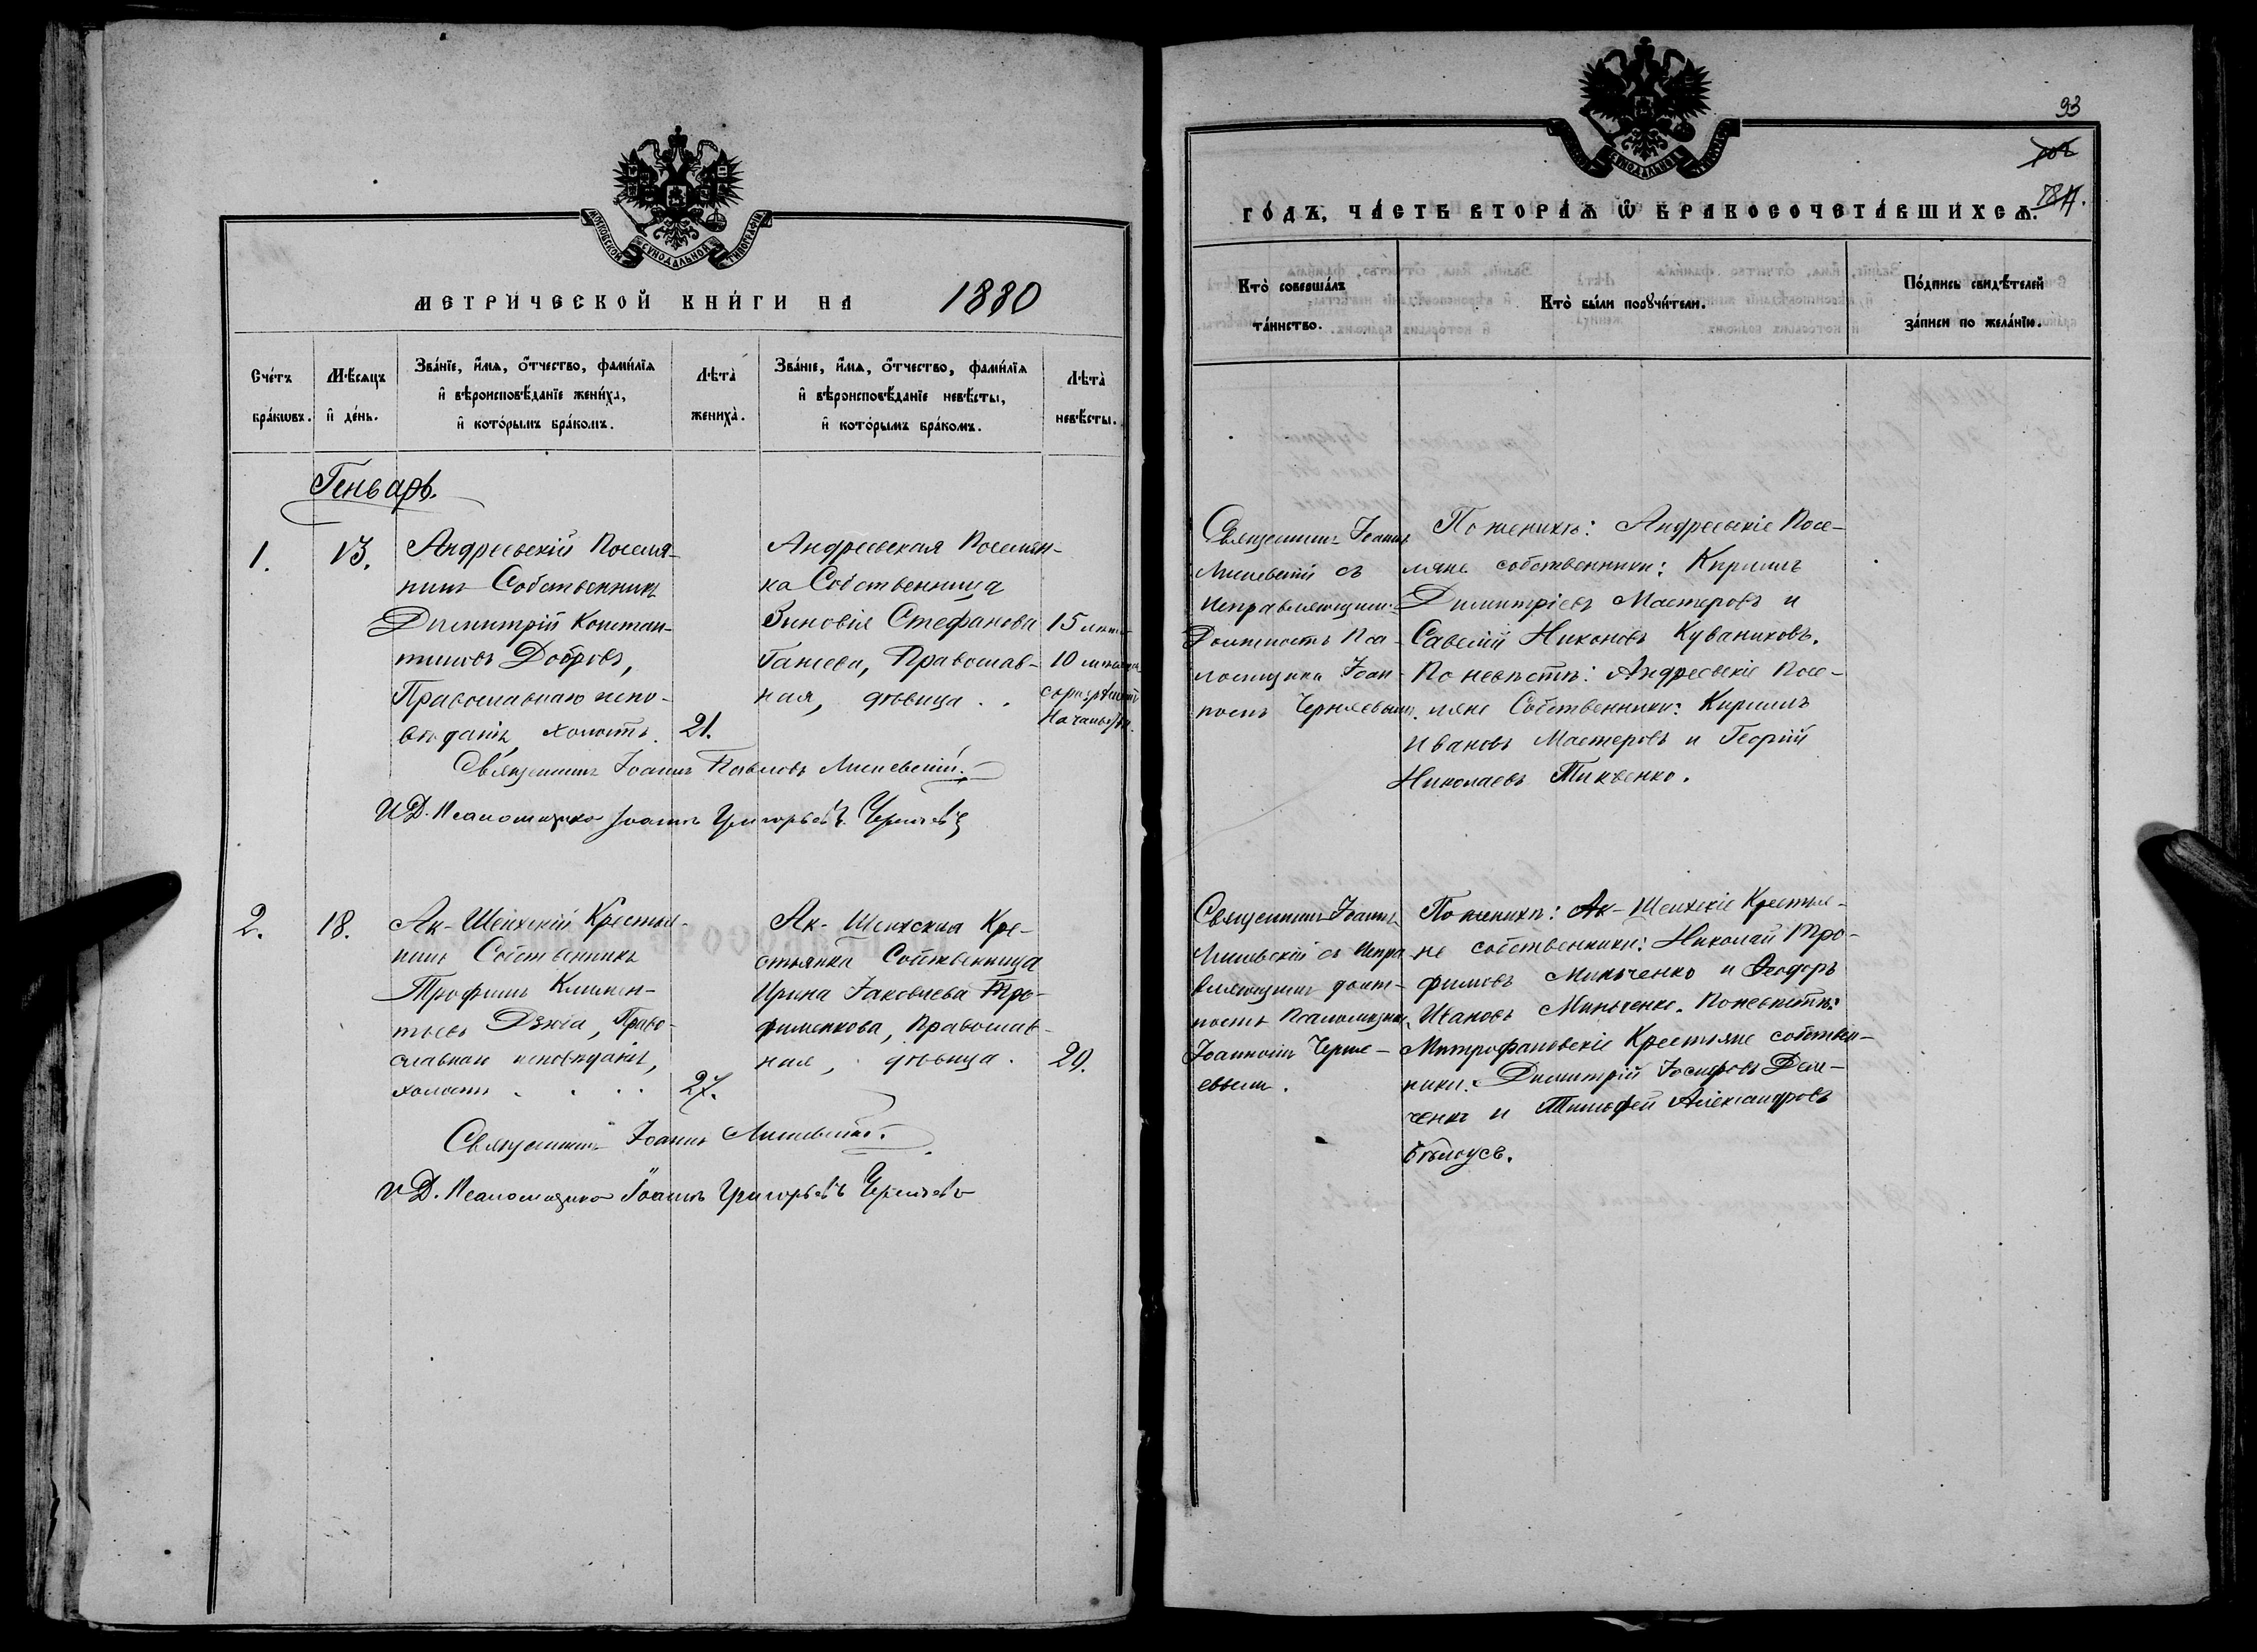 МОСКОВСКОЙ СУНОДАЛЬНОЙ ТИПОГРАФІИ
МЕТРИ́ЧЕСКОЙ КНИ́ГИ НА 1880
Сче́тъ бра́кωвъ.
Мѣ́сяцъ и҆ де́нь.
Зва́нїе, и҆́мѧ, ѻ҆́тчество, фами́лїѧ
и҆ вѣроисповѣ́данїе жениха̀,
и҆ кото́рымъ бра́комъ.
Лѣта̀ жениха̀.
Зва́нїе, и҆́мѧ, ѻ҆́тчество, фами́лїѧ
и҆ вѣроисповѣ́данїе невѣ́сты,
и҆ кото́рымъ бра́комъ.
Лѣта̀ невѣ́сты.
Генварь.
1.
13.
Андреевскій Поселя-
нинъ Собственникъ
Димитрій Констан-
тиновъ Добровъ,
Православнаго испо-
вѣданія, холостъ.
21.
Андреевская Поселян-
ка Собственница
Зиновія Стефанова
Ганева, Православ-
ная, дѣвица . .
15 лѣтъ
10 мѣсяц.
съ разрѣшенія
Начальства.
Священникъ Іоаннъ Павловъ Лисневскій.
И Д. Псаломщика Іоаннъ Григорьевъ Черняевъ
2.
18.
Ак-Шеихскій Крестья-
нинъ Собственникъ
Трофимъ Климен-
тьевъ Дзюба, Право-
славнаго исповѣданія,
холостъ . . . .
27.
Ак-Шеихская Кре-
стьянка Собственница
Ирина Іаковлева Тро-
фименкова, Православ-
ная, дѣвица.
20.
Священникъ Іоаннъ Лисневскій.
И Д. Псаломщика Іоаннъ Григорьевъ Черняевъ
93
78
ГО́ДЪ, ЧА́СТЬ ВТОРА́Ѧ Ѿ БРАКОСОЧЕТА́ВШИХСѦ.
Кто̀ соверша́лъ
та́инство.
Кто̀ бы́ли порꙋчи́тели.
По́дпись свидѣ́телей
за́писи по жела́нїю.
Священникъ Іоаннъ
Лисневскій съ
Исправляющимъ
Должность Пса-
ломщика Іоан-
номъ Черняевымъ.
По женихѣ: Андреевскіе Посе-
ляне собственники: Кириллъ
Димитріевъ Мастеровъ и
Савелій Никоновъ Куваниховъ.
По невѣстѣ: Андреевскіе Посе-
ляне Собственники: Кириллъ
Ивановъ Мастеровъ и Георгій
Николаевъ Тиквенко.
Священникъ Іоаннъ
Лисневскій съ Испра-
вляющимъ долж-
ность Псаломщика
Іоанномъ Черня-
евымъ.
По женихѣ: Ак-Шеихскіе Крестья-
не собственники: Николай Тро-
фимовъ Минченко и Ѳеодоръ
Ивановъ Минченко. По невѣстѣ:
Митрофановскіе Крестьяне собствен-
ники: Димитрій Іосифовъ Дем-
ченко и Тимофей Александровъ
Бѣлоусъ.